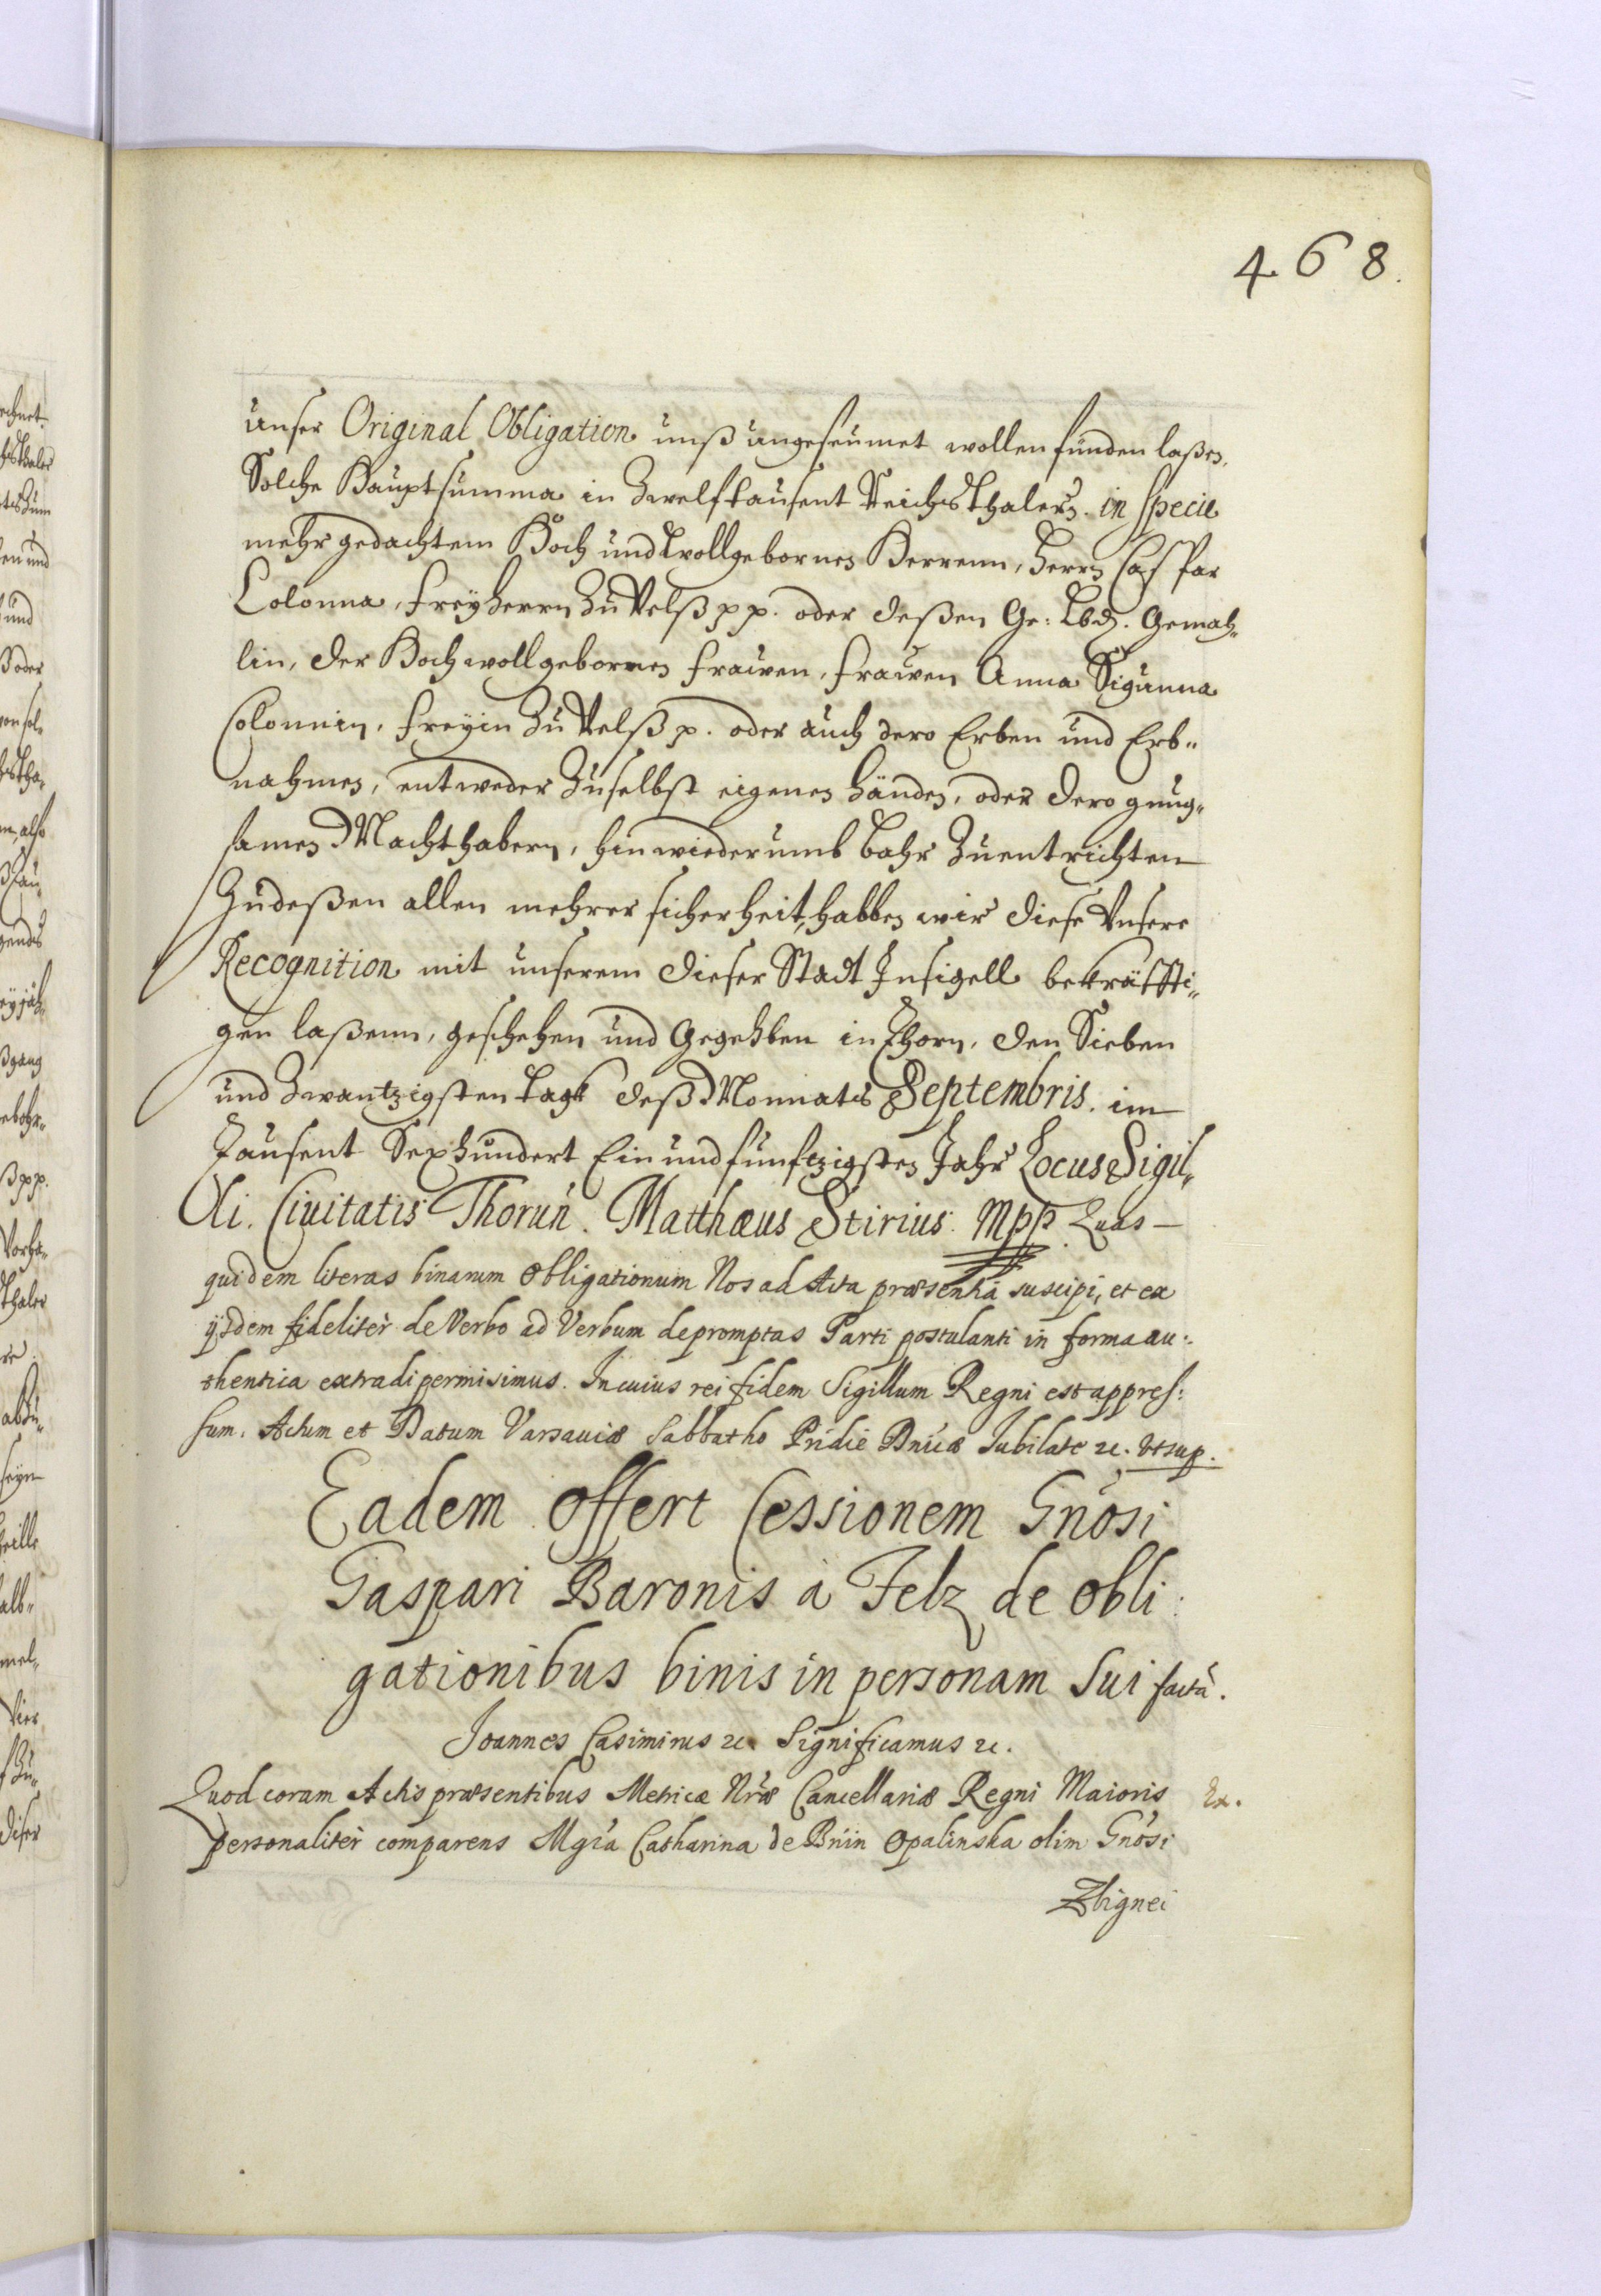 468.
unser Original Obligation unß ungeseumet wollen finden laßen,
Solche Hauptsumma in Zwelftausent Reichsthalern. in specie
mehr gedachtem Hoch und Wollgebornen Herrenn, Herrn Caspar
Colonna, Freÿherrn Zu Velß pp. oder deßen Ge: Lbd. Gemah-
lin, der Hochwollgebornen Frawen, Frawen Anna Sigunna
Colonnin, Freÿin Zu Velß p. oder auch dero Erben und Erb-
nahmen, entweder Zu selbst eigenen Händen, oder dero gnug-
samen Machthabern, hinwiederumb bahr Zuentrichten
Zu deßen allen mehrer sicherheit, habben wir diese Unsere
Recognition mit unserem dieser Stadt Insigell bekräffti-
gen laßenn, geschehen und Gegehben in Thorn, den Sieben
und Zwantzigsten tagk deß Monnats Septembris. im
Tausent Sexhundert Ein und funfzigsten Jahr Locus Sigil-
li. Civitatis Thorun. Matthæus Stirius. Mpp. Quas
quidem literas binarum Obligationum Nos ad Acta præsentia suscipi, et ex
ijsdem fideliter de Verbo ad Verbum depromptas Parti postulanti in forma au:
thentica extradi permisimus. In cuius rei fidem Sigillum Regni est appres:
sum. Actum et Datum Varsaviæ Sabbatho Pridie Dnicæ Jubilate etc. Ut sup.
Eadem offert Cessionem Gnosi
Gaspari Baronis à Felz de obli:
gationibus binis in personam sui facta.
Joannes Casimirus etc. Significamus etc.
Quod coram Actis præsentibus Metricæ Nræ Cancellariæ Regni Maioris
Ex.
personaliter comparens Mgca Catharina de Bnin Opalinska olim Gnosi
Zbignei